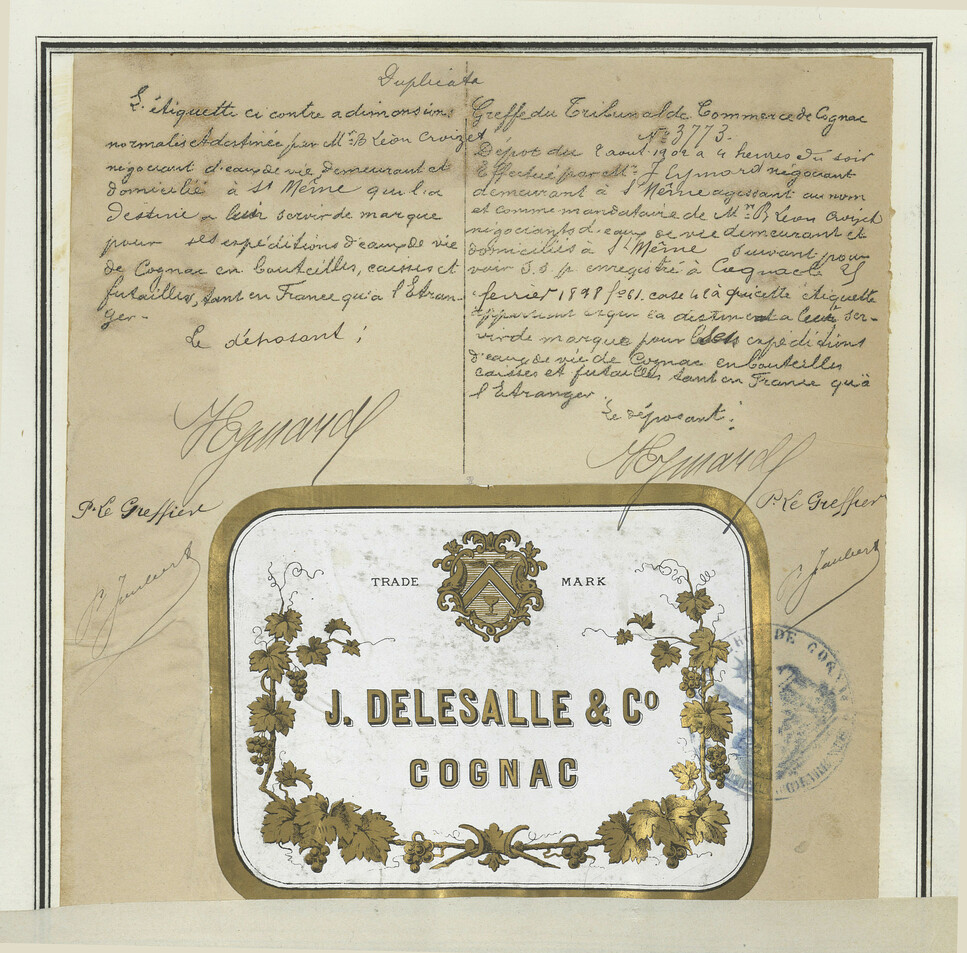 Duplicata
L'étiquette ci contre a dimensions
normales et destinée par Mr B Léon Croizet
négociant d'eaux de vie, demeurant et
domicilié à St Même qui l'a
destinée a leur servir de marque
pour ses expéditions d'eaux de vie
de Cognac en bouteilles, caisses et
futailles, tant en France qu'à l'Etran-
ger-
Le déposant;
P. Le Greffier
Greffe du Tribunal de Commerce de Cognac
No 3773.
Dépot du 2 aout 1902 a 4 heures du soir
Effectué par Mr J Eymard négociant
demeurant à St Même agissant au nom
et comme mandataire de Mr B Léon Croizet
négociants d'eaux de vie demeurant et
domiciliés à St Même suivant pou-
voir S.S.p. enregistré à Cognac le 25
fevrier 1898 fo 61. case 4 là qui cette étiquette
appartient et qui l'a destinent a leur ser-
vir de marque pour expéditions
d'eaux de vie de Cognac en bouteilles
caisses et futailles tant en France qu'à
l'Etranger
Le déposant;
P. Le Greffier
TRADE MARK
J. DELESALLE & Co
COGNAC
DE COGNAC